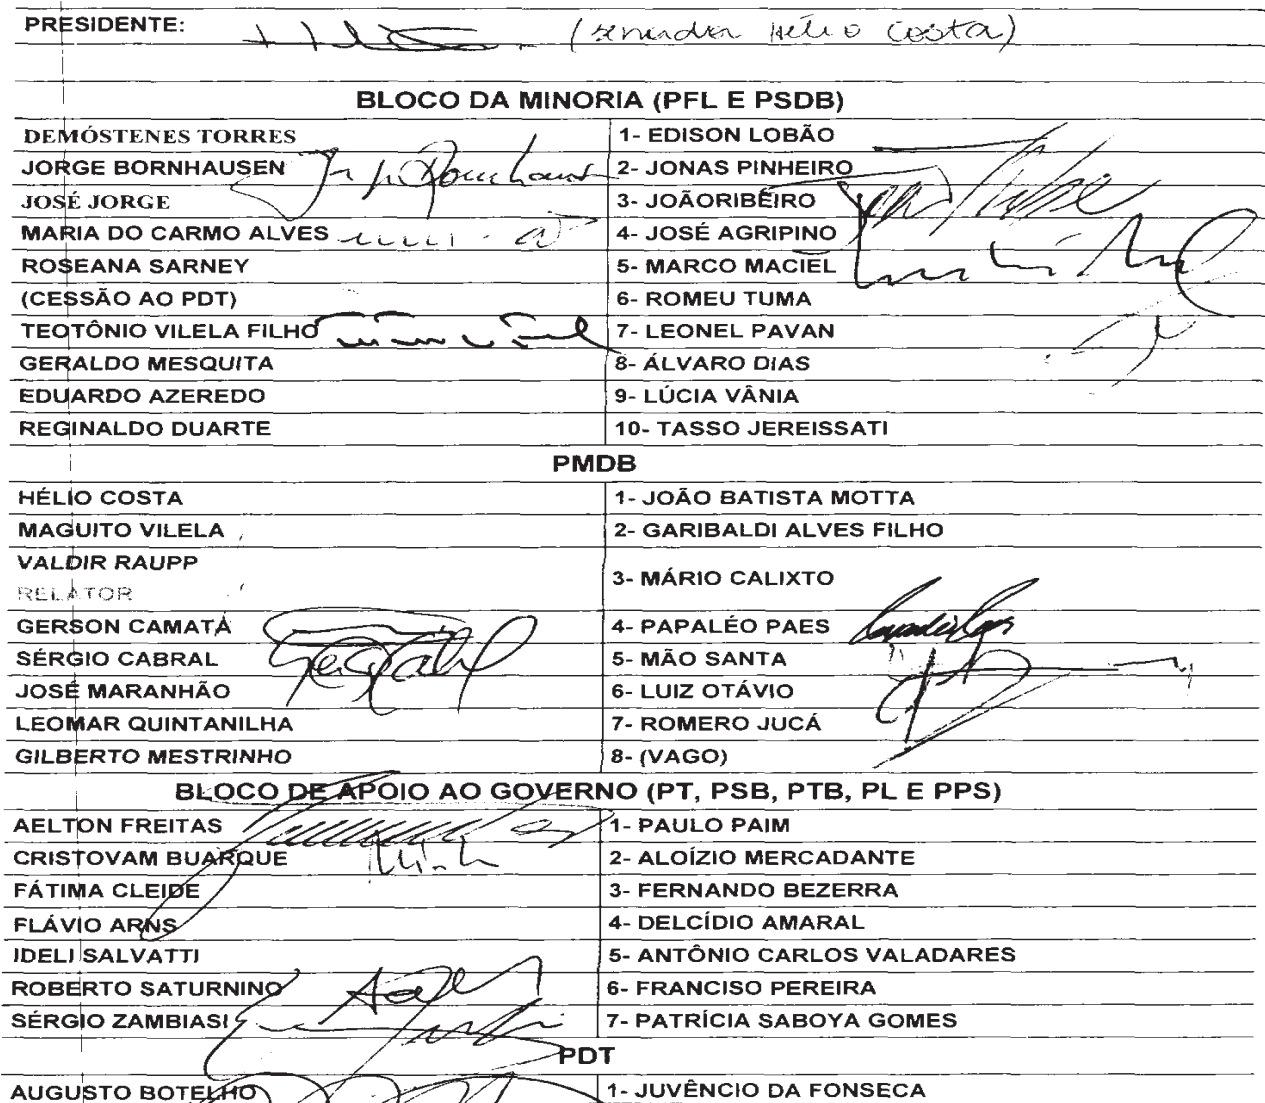 PRESIDENTE: (senador Hélio Costa)
BLOCO DA MINORIA (PFL E PSDB)
DEMÓSTENES TORRES 1- EDISON LOBÃO
JORGE BORNHAUSEN 2- JONAS PINHEIRO
JOSÉ JORGE 3- JOÃORIBEIRO
MARIA DO CARMO ALVES 4- JOSÉ AGRIPINO
ROSEANA SARNEY 5- MARCO MACIEL
(CESSÃO AO PDT) 6- ROMEU TUMA
TEOTÔNIO VILELA FILHO 7- LEONEL PAVAN
GERALDO MESQUITA 8- ÁLVARO DIAS
EDUARDO AZEREDO 9- LÚCIA VÂNIA
REGINALDO DUARTE 10- TASSO JEREISSATI
PMDB
HÉLIO COSTA 1- JOÃO BATISTA MOTTA
MAGUITO VILELA 2- GARIBALDI ALVES FILHO
VALDIR RAUPP
RELATOR 3- MÁRIO CALIXTO
GERSON CAMATA 4- PAPALÉO PAES
SÉRGIO CABRAL 5- MÃO SANTA
JOSÉ MARANHÃO 6- LUIZ OTÁVIO
LEOMAR QUINTANILHA 7- ROMERO JUCÁ
GILBERTO MESTRINHO 8- (VAGO)
BLOCO DE APOIO AO GOVERNO (PT, PSB, PTB, PL E PPS)
AELTON FREITAS 1- PAULO PAIM
CRISTOVAM BUARQUE 2- ALOÍZIO MERCADANTE
FÁTIMA CLEIDE 3- FERNANDO BEZERRA
FLÁVIO ARNS 4- DELCÍDIO AMARAL
IDELI SALVATTI 5- ANTÔNIO CARLOS VALADARES
ROBERTO SATURNINO 6- FRANCISO PEREIRA
SÉRGIO ZAMBIASI 7- PATRÍCIA SABOYA GOMES
PDT
AUGUSTO BOTELHO 1- JUVÊNCIO DA FONSECA